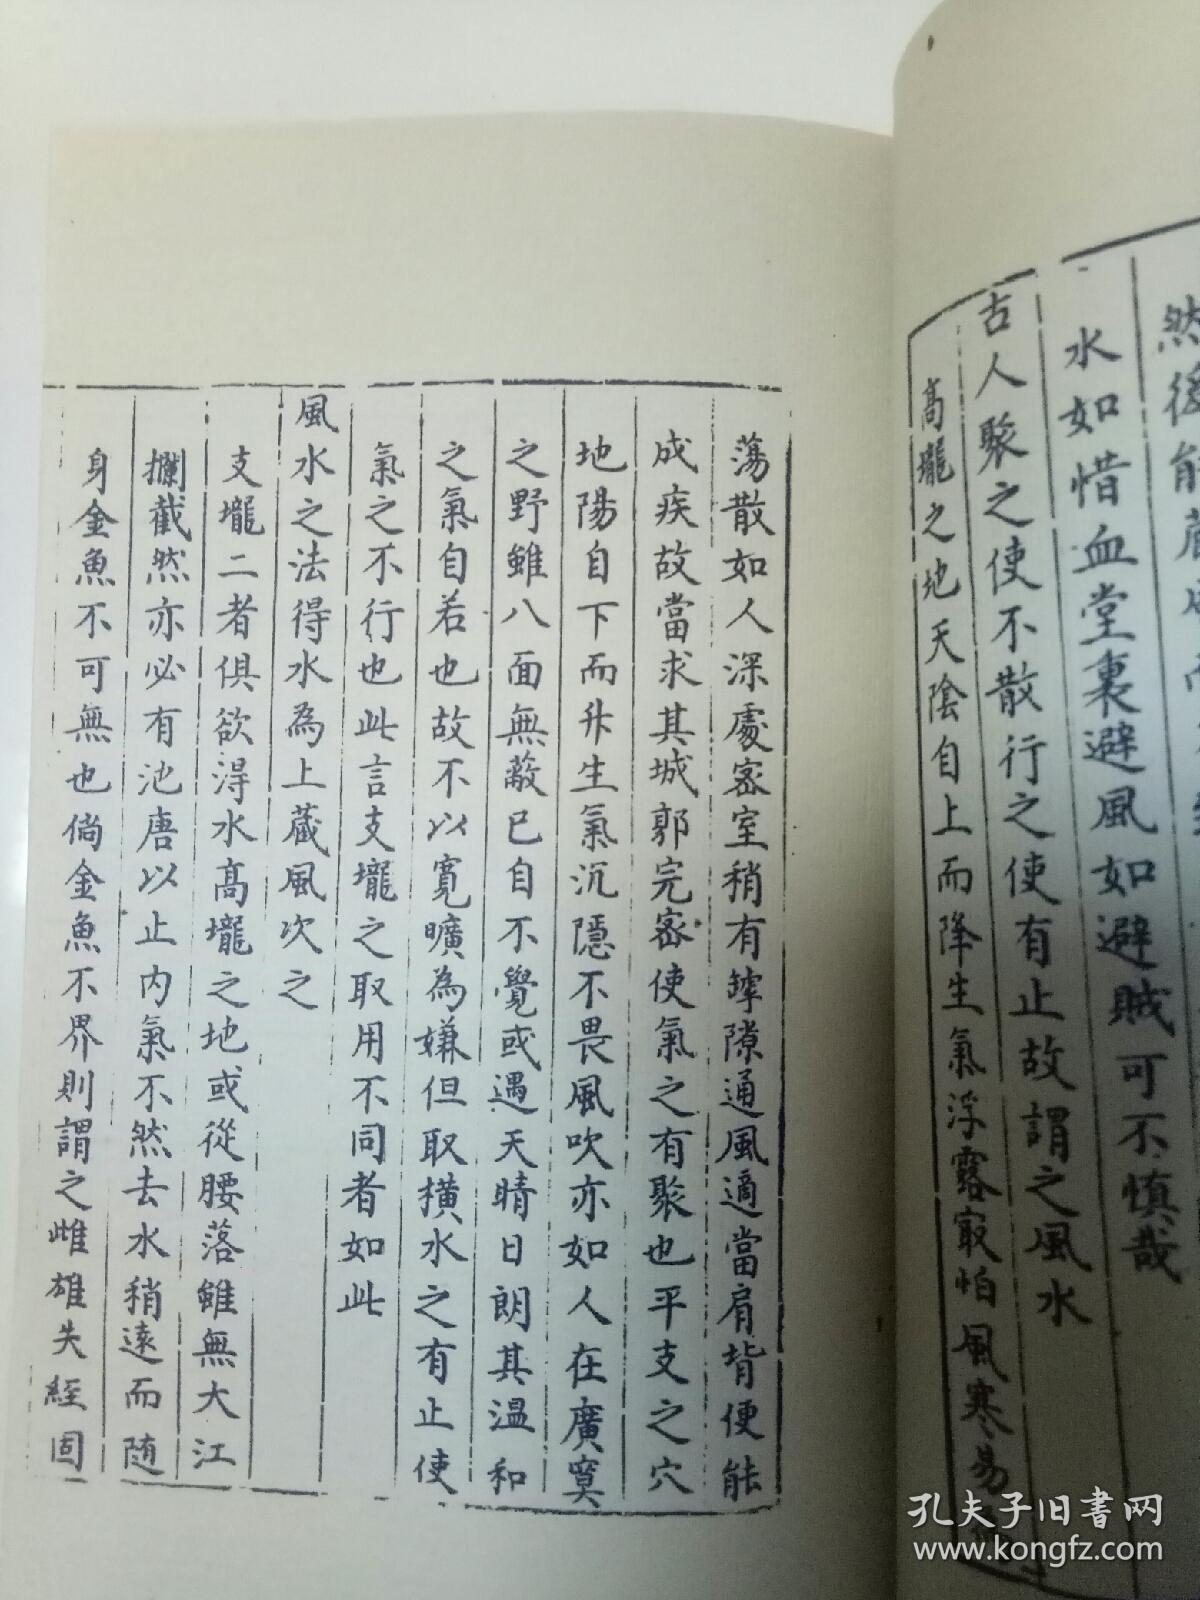 然後能
水如惜血堂裏避風如避賊可不慎哉
古人聚之使不散行之使有止故謂之風水
高壠之地天陰自上而降生氣浮露㝡怕風寒易
蕩散如人深處宻室稍有罅隙通風適當肩背便能
成疾故當求其城郭完宻使氣之有聚也平支之穴
地陽自下而升生氣沉隱不畏風吹亦如人在廣寞
之野雖八面無蔽已自不覺或遇天晴日朗其温和
之氣自若也故不以寬曠為嫌但取横水之有止使
氣之不行也此言支壠之取用不同者如此
風水之法得水為上蔵風次之
支壠二者俱欲淂水高壠之地或從腰落雖無大江
攔截然亦必有池唐以止内氣不然去水稍遠而随
身金魚不可無也倘金魚不界則謂之雌雄失經固
孔夫子旧書网
www.kongfz.com